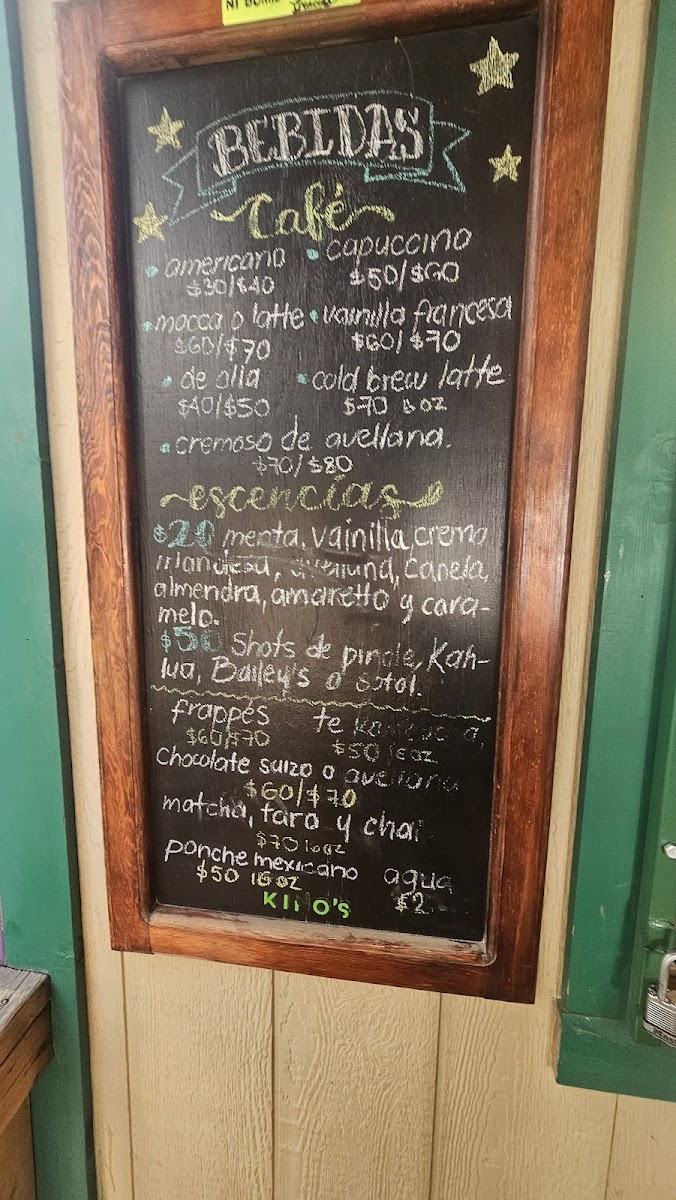 BEBIDAS
Café
americano
$30/$40
capuccino
$50/$60
mocca o latte
$60/$70
vainilla francesa
$60/$70
de olla
$40/$50
cold brew latte
$70 16 oz
cremoso de avellana.
$70/$80
escencias
$20 menta, vainilla, crema
irlandesa, avellana, canela,
almendra, amaretto y cara-
melo.
$50 Shots de pinole, Kah-
lua, Bailey's o sotol.
frappés
$60/$70
te
$50 16 oz
Chocolate suizo o avellana
$60/$70
matcha, taro y chai
$70 16 oz
ponche mexicano
$50 16 oz
agua
KINO'S